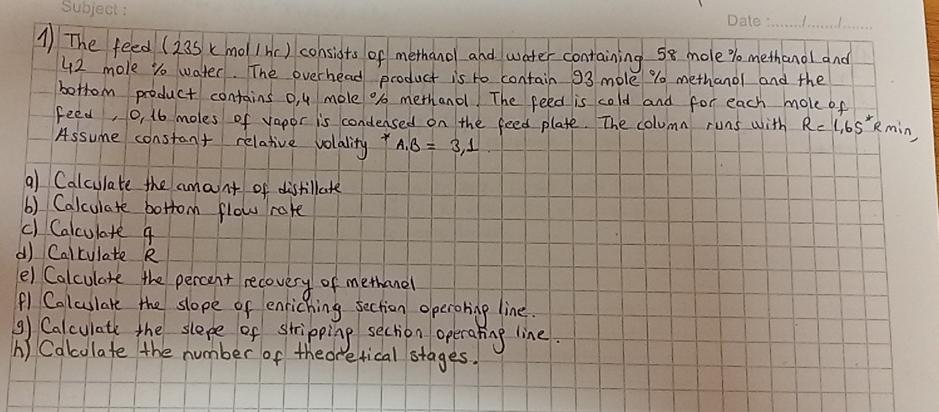 Subject :
Date :......./......./.......
1) The feed (235 kmol/hr) consists of methanol and water containing 58 mole % methanol and
42 mole % water. The overhead product is to contain 93 mole % methanol and the
bottom product contains 0,4 mole % methanol. The feed is cold and for each mole of
feed, 0,16 moles of vapor is condensed on the feed plate. The column runs with R= 1,65*Rmin,
Assume constant relative volality *A,B = 3,1.
a) Calculate the amount of distillate
b) Calculate bottom flow rate
c) Calculate q
d) Calculate R
e) Calculate the percent recovery of methanol
f) Calculate the slope of enriching section operating line.
g) Calculate the slope of stripping section operating line.
h) Calculate the number of theoretical stages.